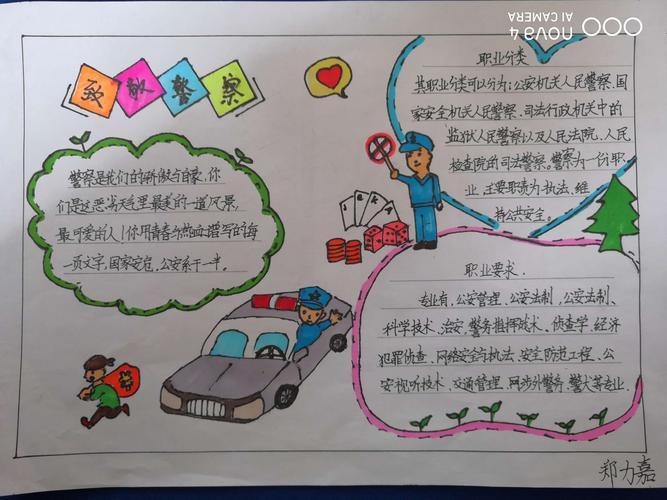 致敬警察
警察是我们的骄傲与自豪,你
们是这恶劣天气里最美的一道风景,
最可爱的人!你用青春热血撰写的每
一页文字,国家安危,公安系于一半。
职业分类
其职业分类可以分为:公安机关人民警察、国
家安全机关人民警察、司法行政机关中的
监狱人民警察以及人民法院、人民
检查院的司法警察。警察为一份职
业,主要职责为执法、维
持公共安全。
职业要求.
专业有,公安管理、公安法制,公安法制、
科学技术、治安、警务指挥战术、侦查学、经济
犯罪侦查、网络安全与执法、安全防范工程、公
安视听技术、交通管理、涉外警务、警犬等专业.
郑力嘉
nova 4
AI CAMERA